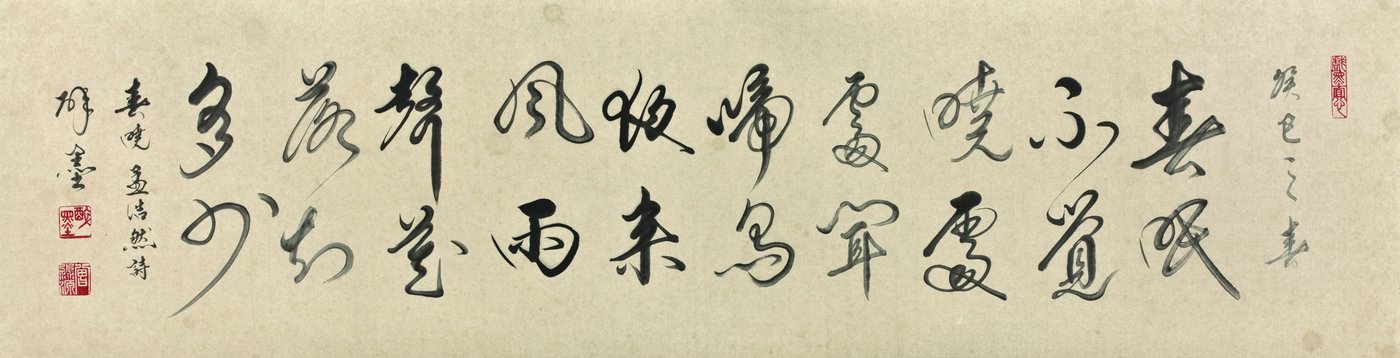 癸巳之春
春眠
不覺
曉處
處聞
啼鳥
夜来
風雨
聲花
落知
多少
春曉 孟浩然詩
醉墨